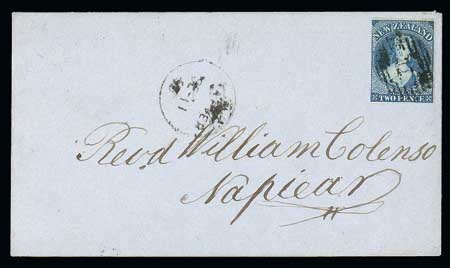 NEW ZEALAND
TWO PENCE
Revd William Colenso
Napiear